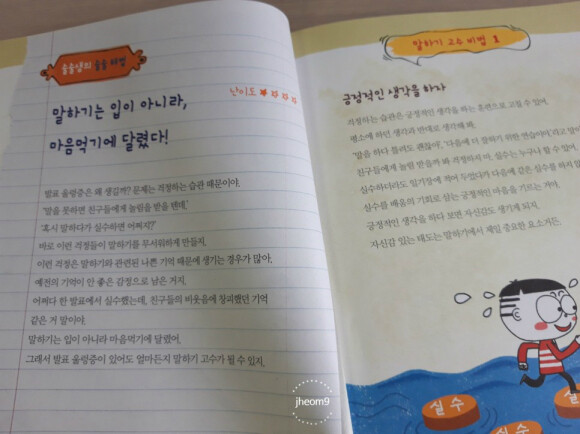 술술샘의 술술 처방
난이도 ★☆☆☆
말하기는 입이 아니라,
마음먹기에 달렸다!
발표 울렁증은 왜 생길까? 문제는 걱정하는 습관 때문이야.
'말을 못하면 친구들에게 놀림을 받을 텐데.'
'혹시 말하다가 실수하면 어쩌지?'
바로 이런 걱정들이 말하기를 무서워하게 만들지.
이런 걱정은 말하기와 관련된 나쁜 기억 때문에 생기는 경우가 많아.
예전의 기억이 안 좋은 감정으로 남은 거지.
어쩌다 한 발표에서 실수했는데, 친구들의 비웃음에 창피했던 기억
같은 거 말이야.
말하기는 입이 아니라 마음먹기에 달렸어.
그래서 발표 울렁증이 있어도 얼마든지 말하기 고수가 될 수 있지.
말하기 고수 비법 1
긍정적인 생각을 하자
걱정하는 습관은 긍정적인 생각을 하는 훈련으로 고칠 수 있어.
평소에 하던 생각과 반대로 생각해 봐.
'말을 하다 틀려도 괜찮아.', '다음에 더 잘하기 위한 연습이야.'라고 말이
친구들에게 놀림 받을까 봐 걱정하지 마. 실수는 누구나 할 수 있어.
실수하더라도 일기장에 적어 두었다가 다음에 같은 실수를 하지 않
실수를 배움의 기회로 삼는 긍정적인 마음을 기르는 거야.
긍정적인 생각을 하다 보면 자신감도 생기게 되지.
자신감 있는 태도는 말하기에서 제일 중요한 요소거든.
실수
실수
실수
jheom9